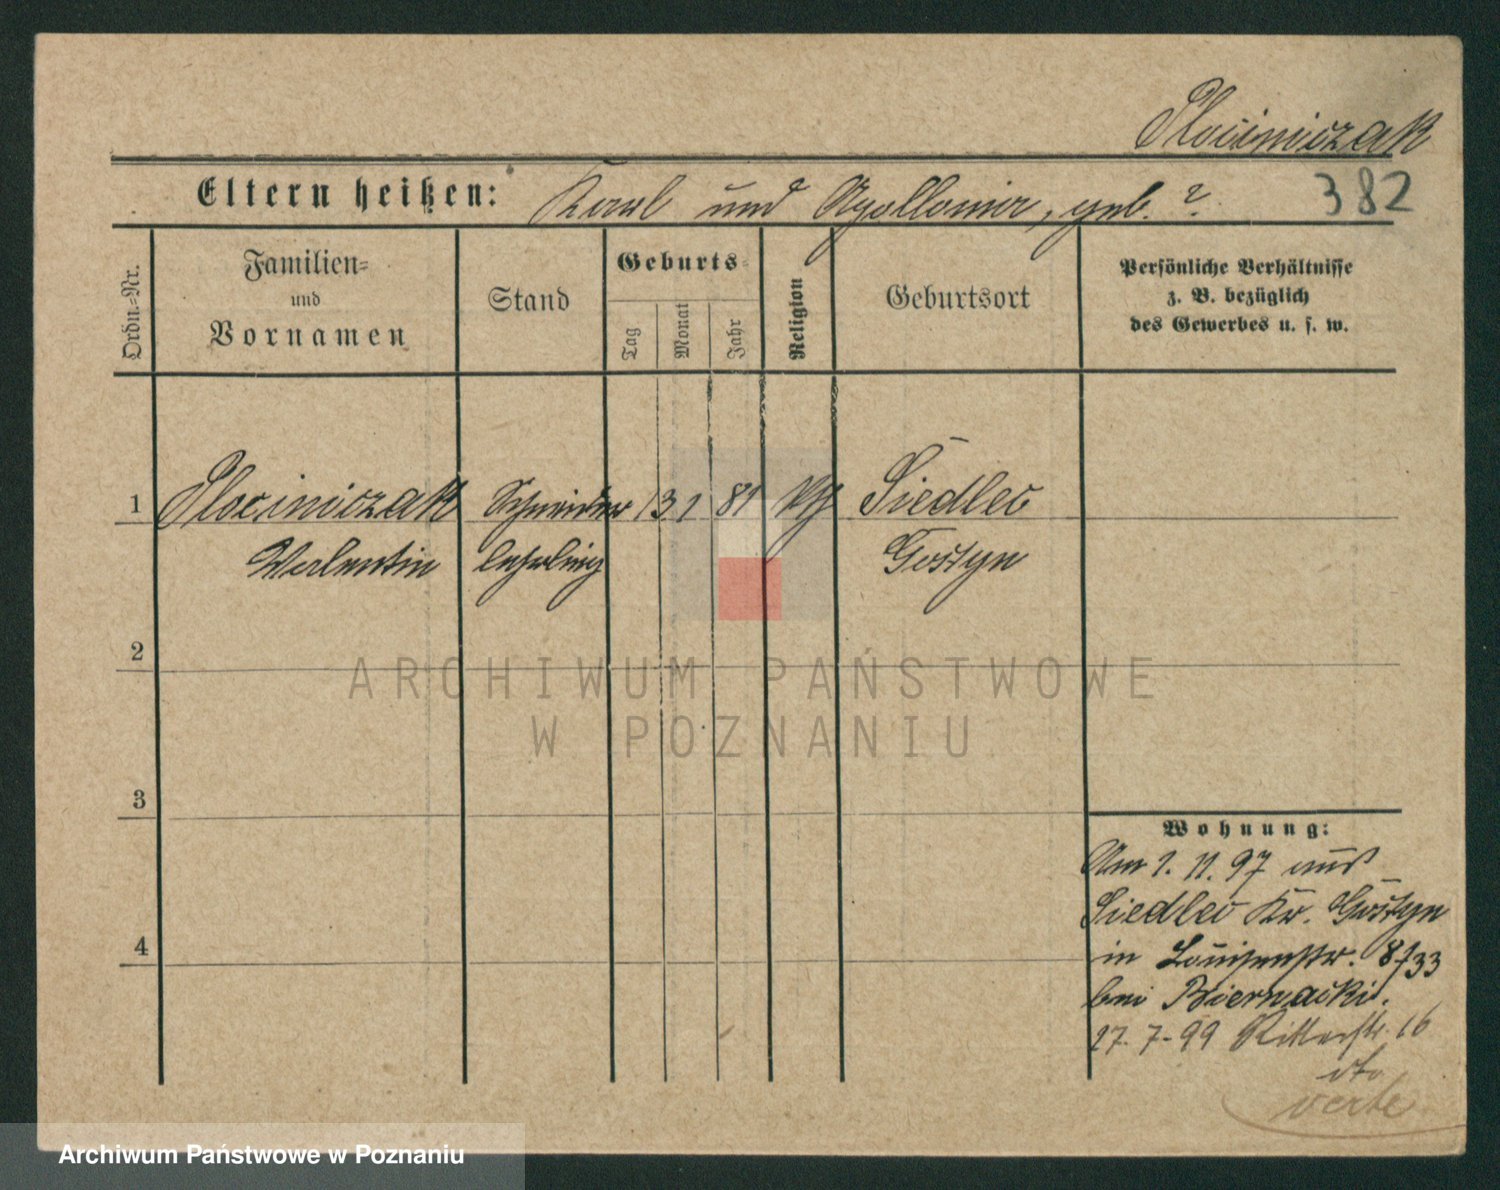 Plociniczak
Eltern heißen: Karl und Apollonia, geb. ?
382
Ordn.-Nr.
Familien-
und
Vornamen
Stand
Geburts-
Tag
Monat
Jahr
Religion
Geburtsort
Persönliche Verhältnisse
z. B. bezüglich
des Gewerbes u. s. w.
1 Plociniczak Schneider 13 1 81 kth Siedlec
Valentin lehrling Gostyn
2
ARCHIWUM PAŃSTWOWE
W POZNANIU
3
Wohnung:
Am 1. 11. 97 aus
Siedlec Kr. Gostyn
4
in Louisenstr. 8/33
bei Biernacki.
27. 7. 99 Ritterstr. 16
dto
verte
Archiwum Państwowe w Poznaniu